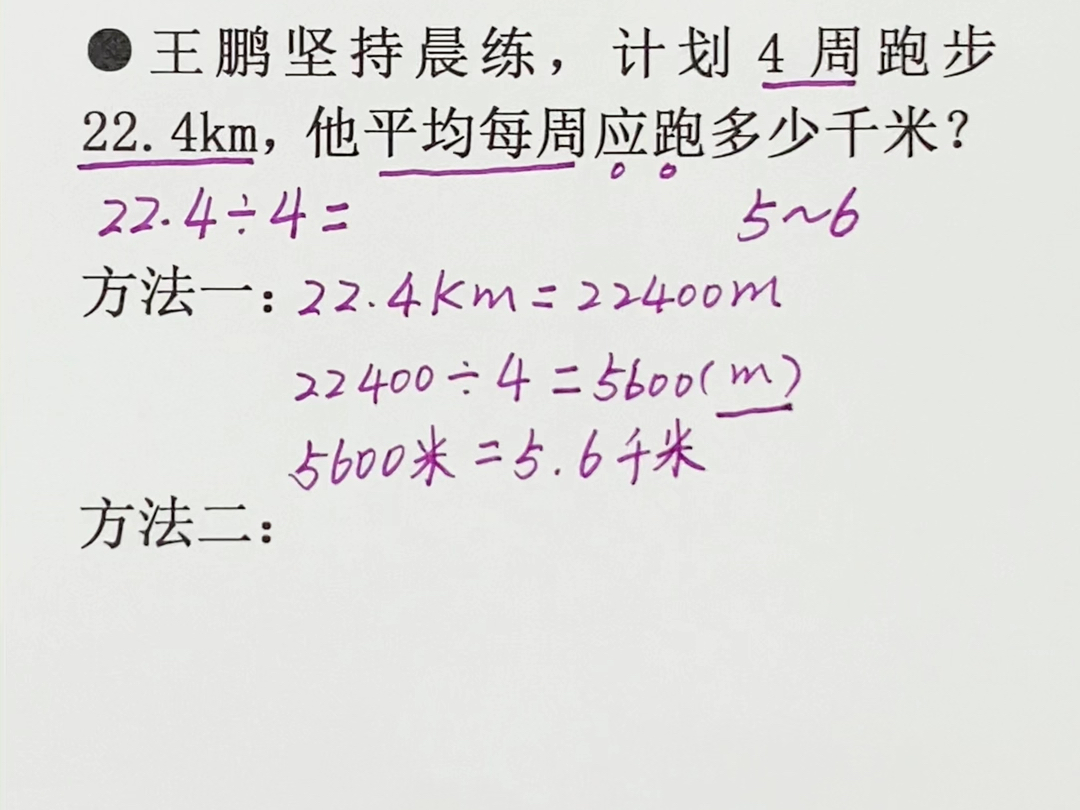 ●王鹏坚持晨练，计划 4 周跑步
22.4km，他平均每周应跑多少千米？
22.4÷4= 5~6
方法一：22.4km=22400m
22400÷4=5600(m)
5600米=5.6千米
方法二：